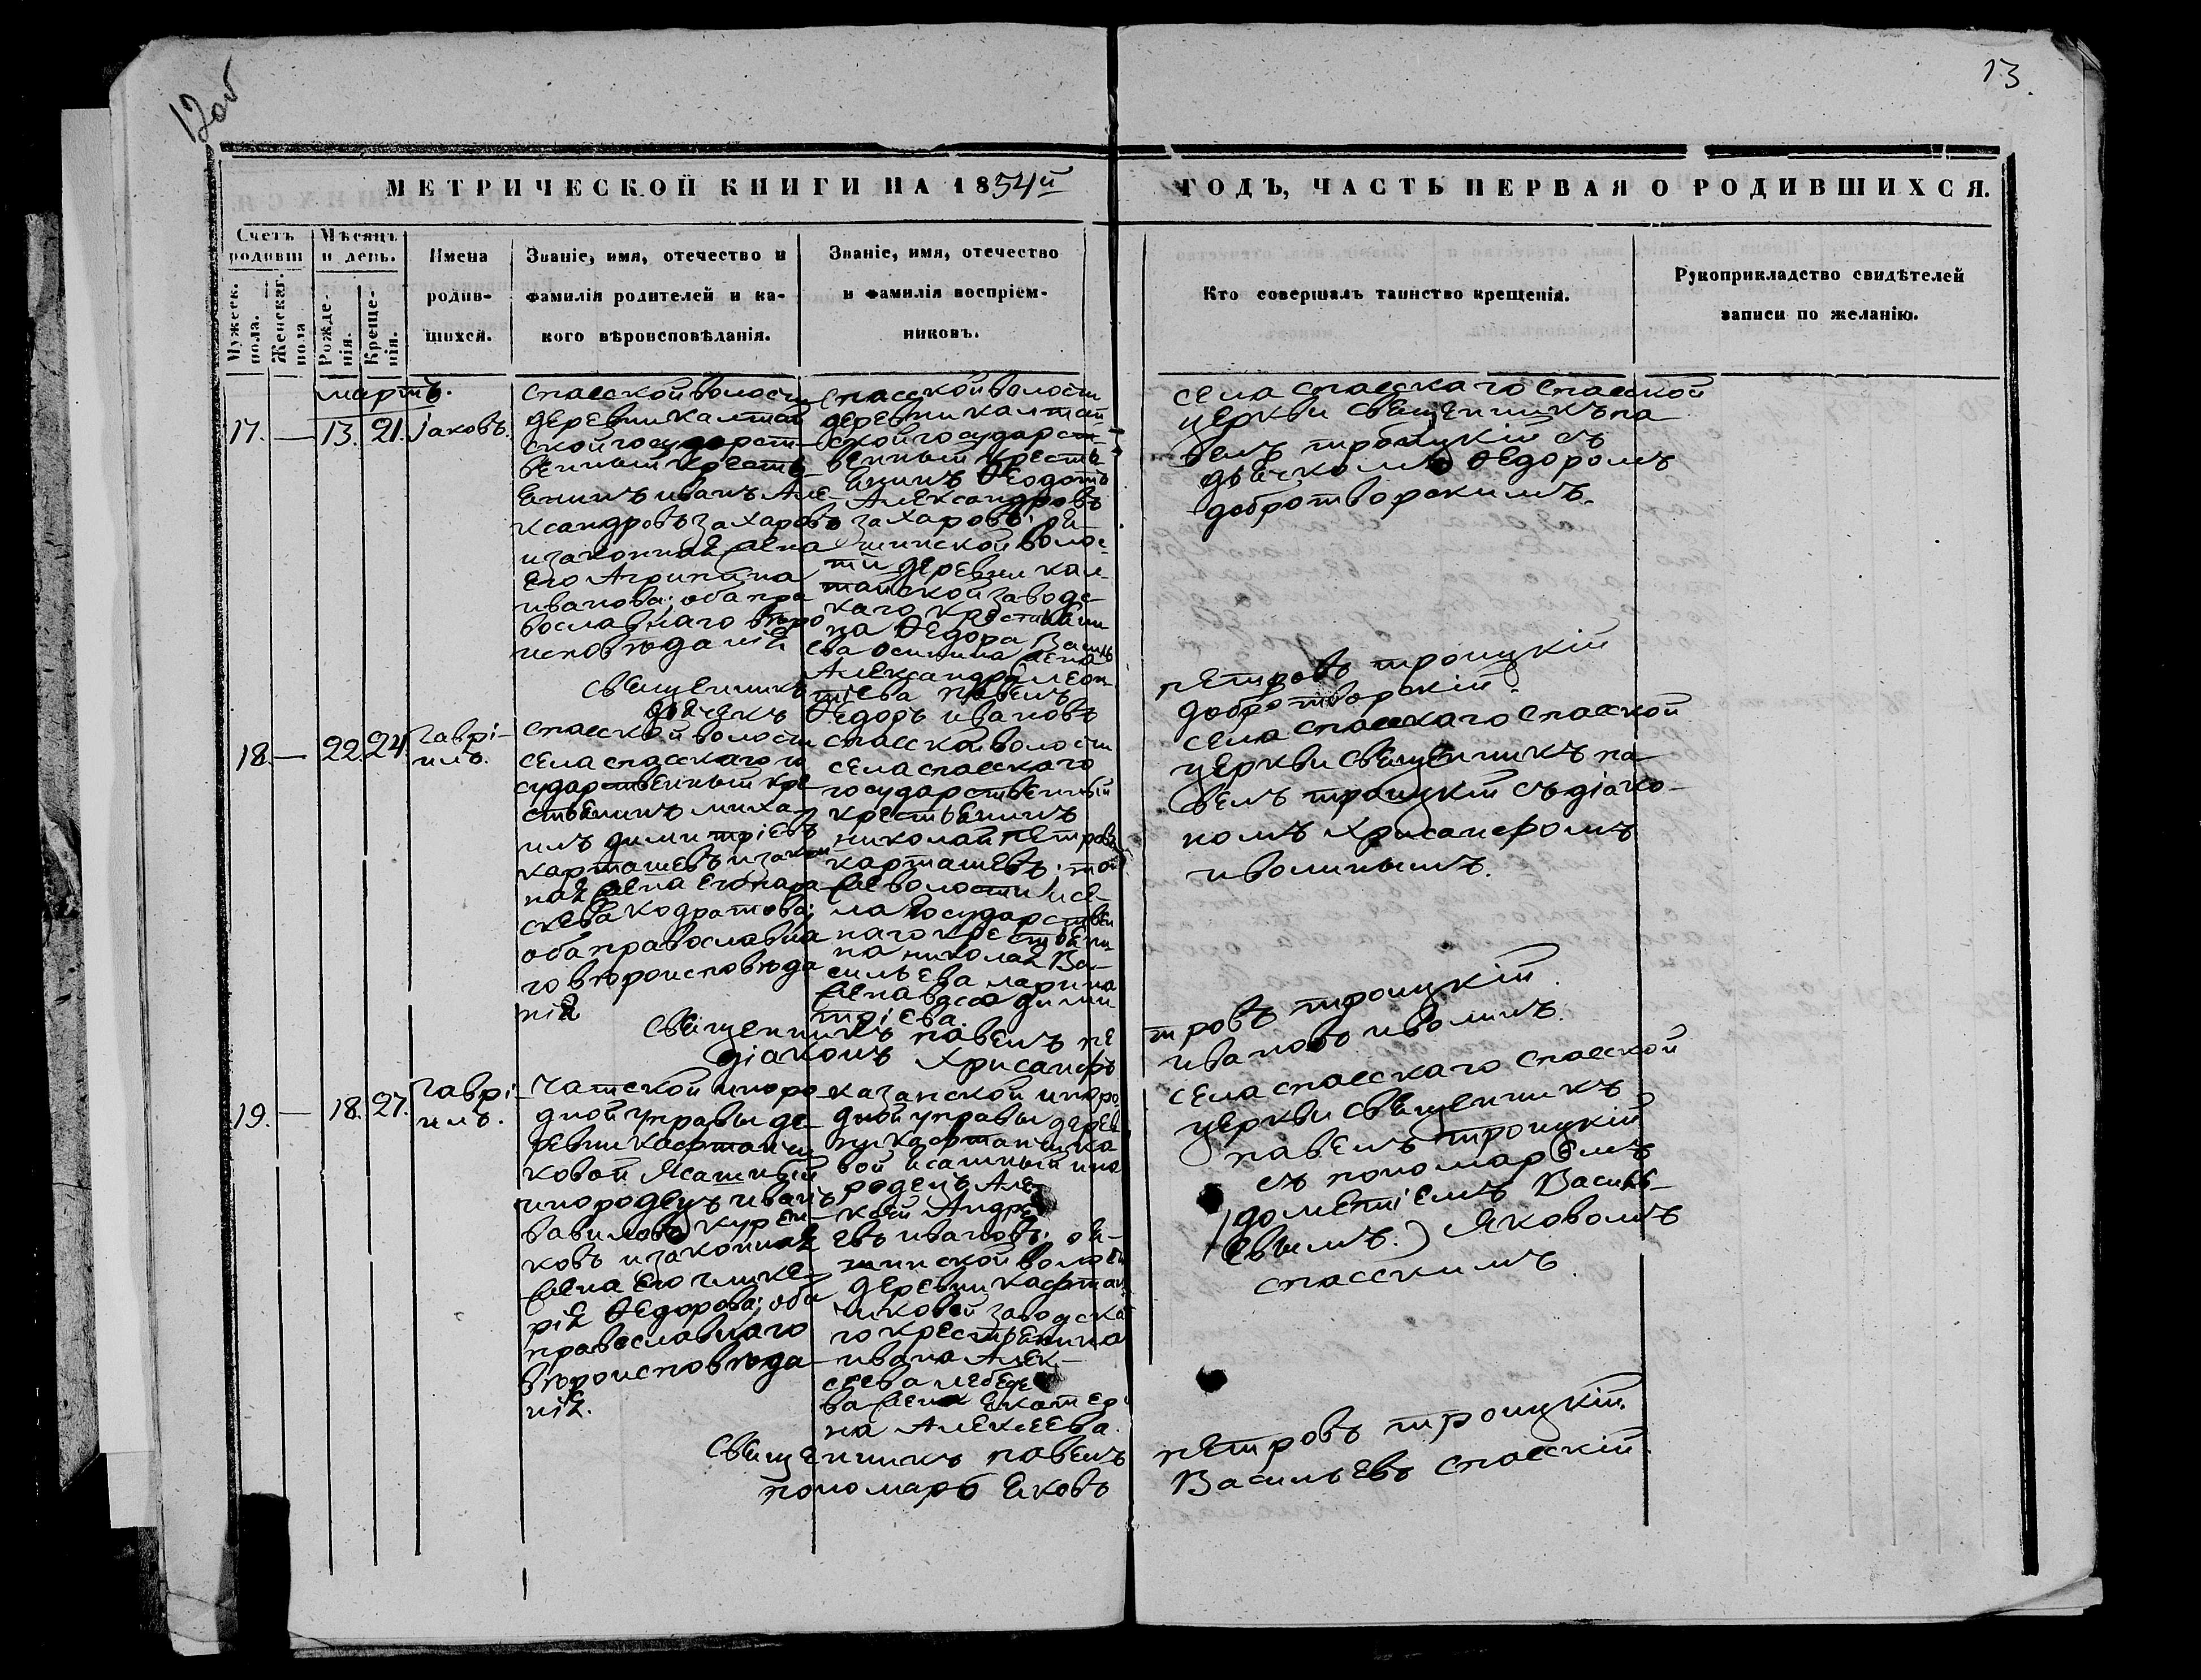 12об
13.
МЕТРИЧЕСКОЙ КНИГИ НА 1854й
ГОДЪ, ЧАСТЬ ПЕРВАЯ О РОДИВШИХСЯ.
Счетъ родивш
Мужеск. пола.
Женскаг. пола
Мѣсяцъ и день.
Рожде-
нія.
Креще-
нія.
Имена
родив-
шихся.
Званіе, имя, отечество и
фамилія родителей и ка-
кого вѣроисповѣданія.
Званіе, имя, отечество
и фамилія воспріем-
никовъ.
Кто совершалъ таинство крещенія.
Рукоприкладство свидѣтелей
записи по желанію.
мартъ.
17. — 13. 21. Іаковъ.
спасской волости
деревни калтай
ской государст-
венный кресть-
янинъ иванъ Але-
ксандровъ захаровъ
и законная жена
его Агрипина
иванова; оба пра
вославнаго вѣро
исповѣданія
спасской волости
деревни калтай
ской государст-
венный кресть-
янинъ Ѳеодотъ
Александровъ
захаровъ;
шинской волос-
ти деревни кал-
тайской заводс
каго крестьяни
на Ѳедора Василь
ева осипина жена
Александра леон
тіева
села спасскаго спасской
церкви священникъ па
велъ троицкій съ
дьячкомъ Ѳедоромъ
добротворскимъ.
священникъ павелъ петровъ троицкій
дьячекъ Ѳедоръ ивановъ добротворскій.
18. — 22. 24. Гаврі-
илъ.
спасской волости
села спасскаго го
сударственный кре
стьянинъ миха-
илъ димитріевъ
карташевъ и закон
ная жена его пара
скева кодратова;
оба православна
го вѣроисповѣда
нія
спасской волости
села спасскаго
государственный
крестьянинъ
николай петровъ
карташевъ; той
же волости и се-
ла государствен
наго крестьяни
на николая Ва-
сильева ларина
жена димит
тріева.
села спасскаго спасской
церкви священникъ па
велъ троицкій съ діако-
номъ Хрисанфомъ
иволинымъ.
священникъ павелъ петровъ троицкій.
діаконъ Хрисанфъ ивановъ иволинъ.
19. — 18. 27. Гаврі-
илъ.
Чатской иноро
дной управы де-
ревни кафтанчи
ковой Ясашный
инородецъ иванъ
вавиловъ курен-
ковъ и законная
жена его глике-
рія Ѳедорова; оба
православнаго
вѣроисповѣда
нія.
казанской иноро
дной управы дерев
ни кафтанчико
вой ясашный ино
родецъ Але
ксѣй Андре
евъ ивановъ;
шинской волости
деревни кафтан
чиковой заводска
го крестьянина
ивана Алек-
сеева лебеде
ва жена Екатери
на Алексеева.
села спасскаго спасской
церкви священникъ
павелъ троицкій
съ пономаремъ
(дометіемъ Василь-
евымъ.) Яковомъ
спасскимъ.
священникъ павелъ петровъ троицкій.
пономарь Яковъ Васильевъ спасскій.